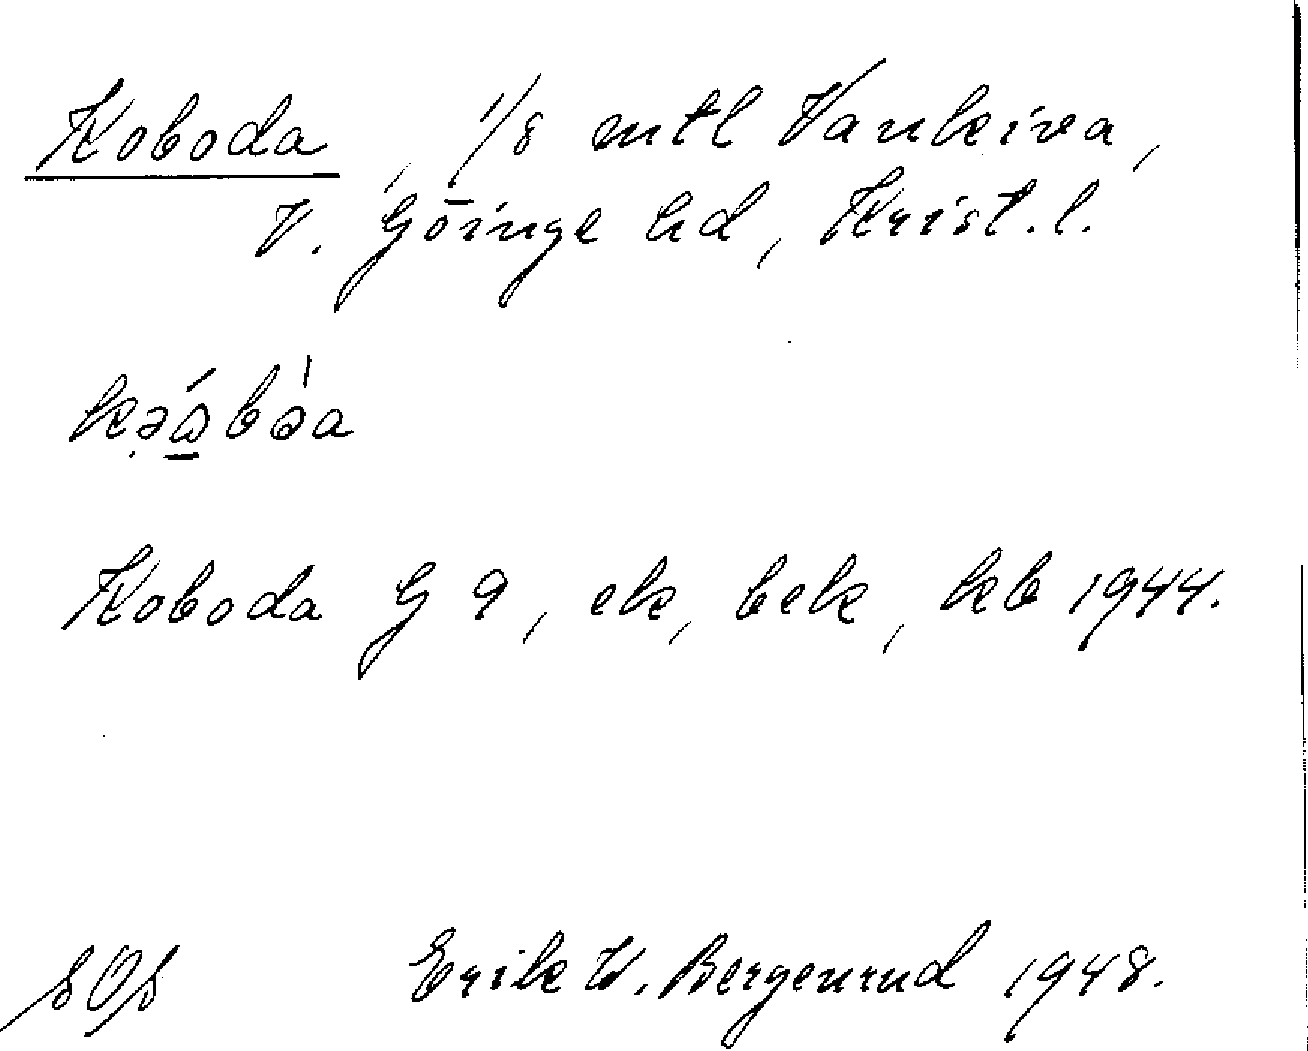 Koboda, 1/8 mtl Vankiva,
V. Göinge hd, Krist. l.
Koboda G 9, ek, bek, kb 1944.
SOS Erik W. Bergenrud 1948.